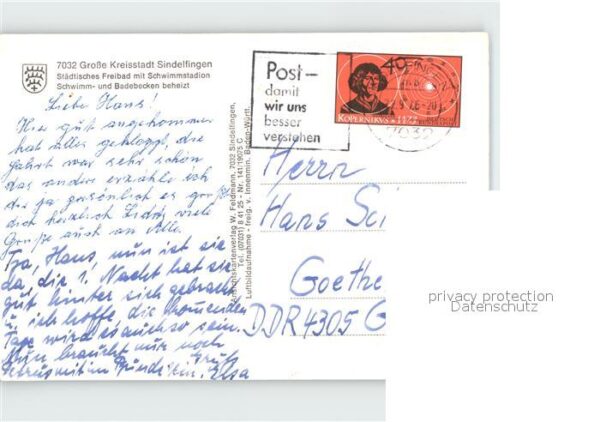 7032 Große Kreisstadt Sindelfingen
Städtisches Freibad mit Schwimmstadion
Schwimm- und Badebecken beheizt
Liebe Hans!
Hier gut angekommen
hat alles geklappt, die
Fahrt war sehr schön
das andere erzähle ich
dir ja persönlich es grüßt
dich herzlich viele
Grüße auch an Alle.
Tja, Hans, nun ist sie
da, die 1. Nacht hat sie
gut hinter sich gebracht
u. ich hoffe, die kommenden
Tage wird es auch so sein.
Nun braucht nur noch
Elsa
Ansichtskartenverlag W. Feldmann, 7032 Sindelfingen,
Tel. (07031) 8 41 25 - Nr. 141/1975 C
Luftbildaufnahme - freig. v. Innenmin. Baden-Württ.
Post-
damit
wir uns
besser
verstehen
40
KOPERNIKUS 1473
7032
Herrn
Hans Sei
Goethe
DDR 4305 G
privacy protection
Datenschutz